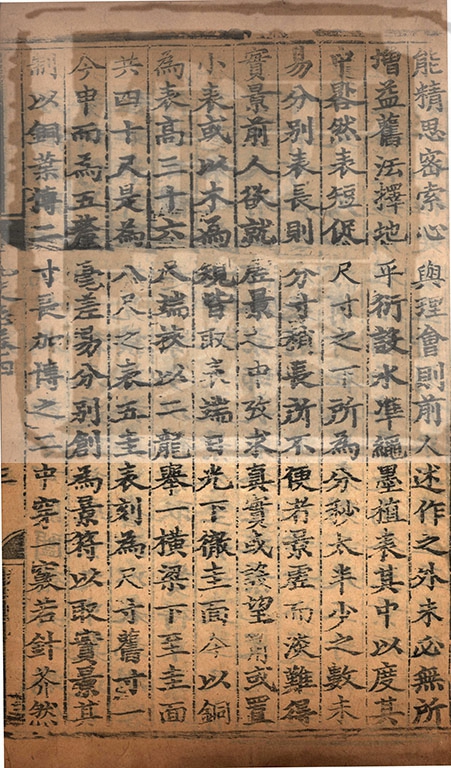 能精思密索心與理會則前人述作之外未必無所
增益舊法擇地平衍設水準繩墨植表其中以度其
中晷然表短促尺寸之下所為分秒太半少之數未
易分別表長則分寸稍長所不便者景虛而淡難得
實景前人欲就虛景之中攷求真實或設望筩或置
小表或以木為規皆取表端日光下徹圭面今以銅
為表高三十六尺端挾以二龍舉一橫梁下至圭面
共四十尺是為八尺之表五圭表刻為尺寸舊寸一
今申而為五釐毫差易分別創為景符以取實景其
制以銅葉博二寸長加博之二中穿一竅若針芥然